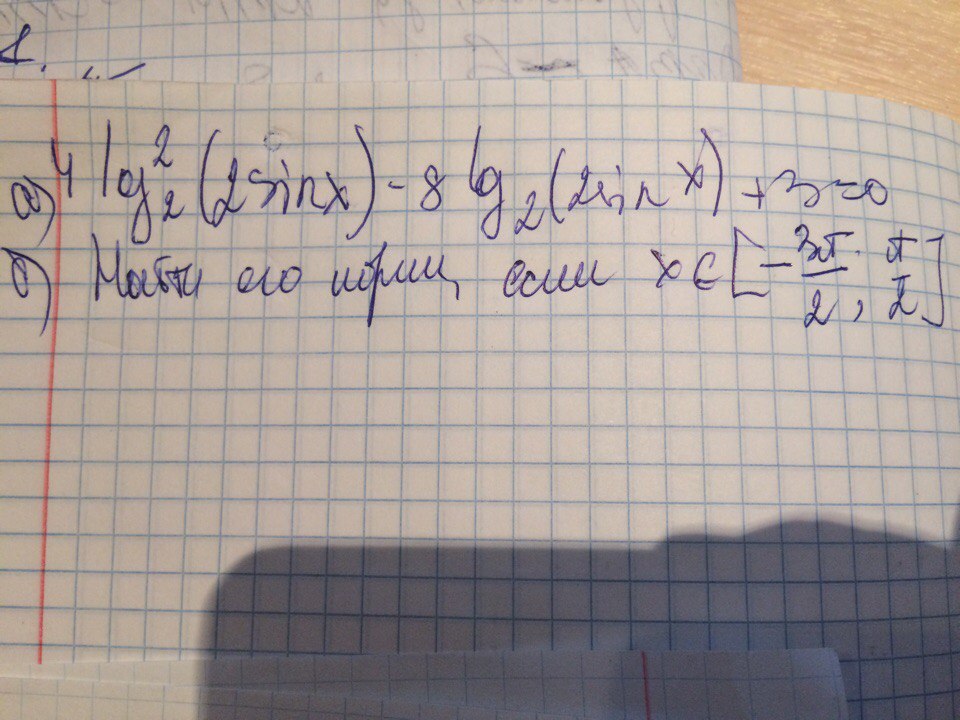 1.
а) 4 lg₂²(2sinx) - 8 lg₂(2sin x) + 3 = 0
б) Найти его корни, если x ∈ [-3π/2; π/2]